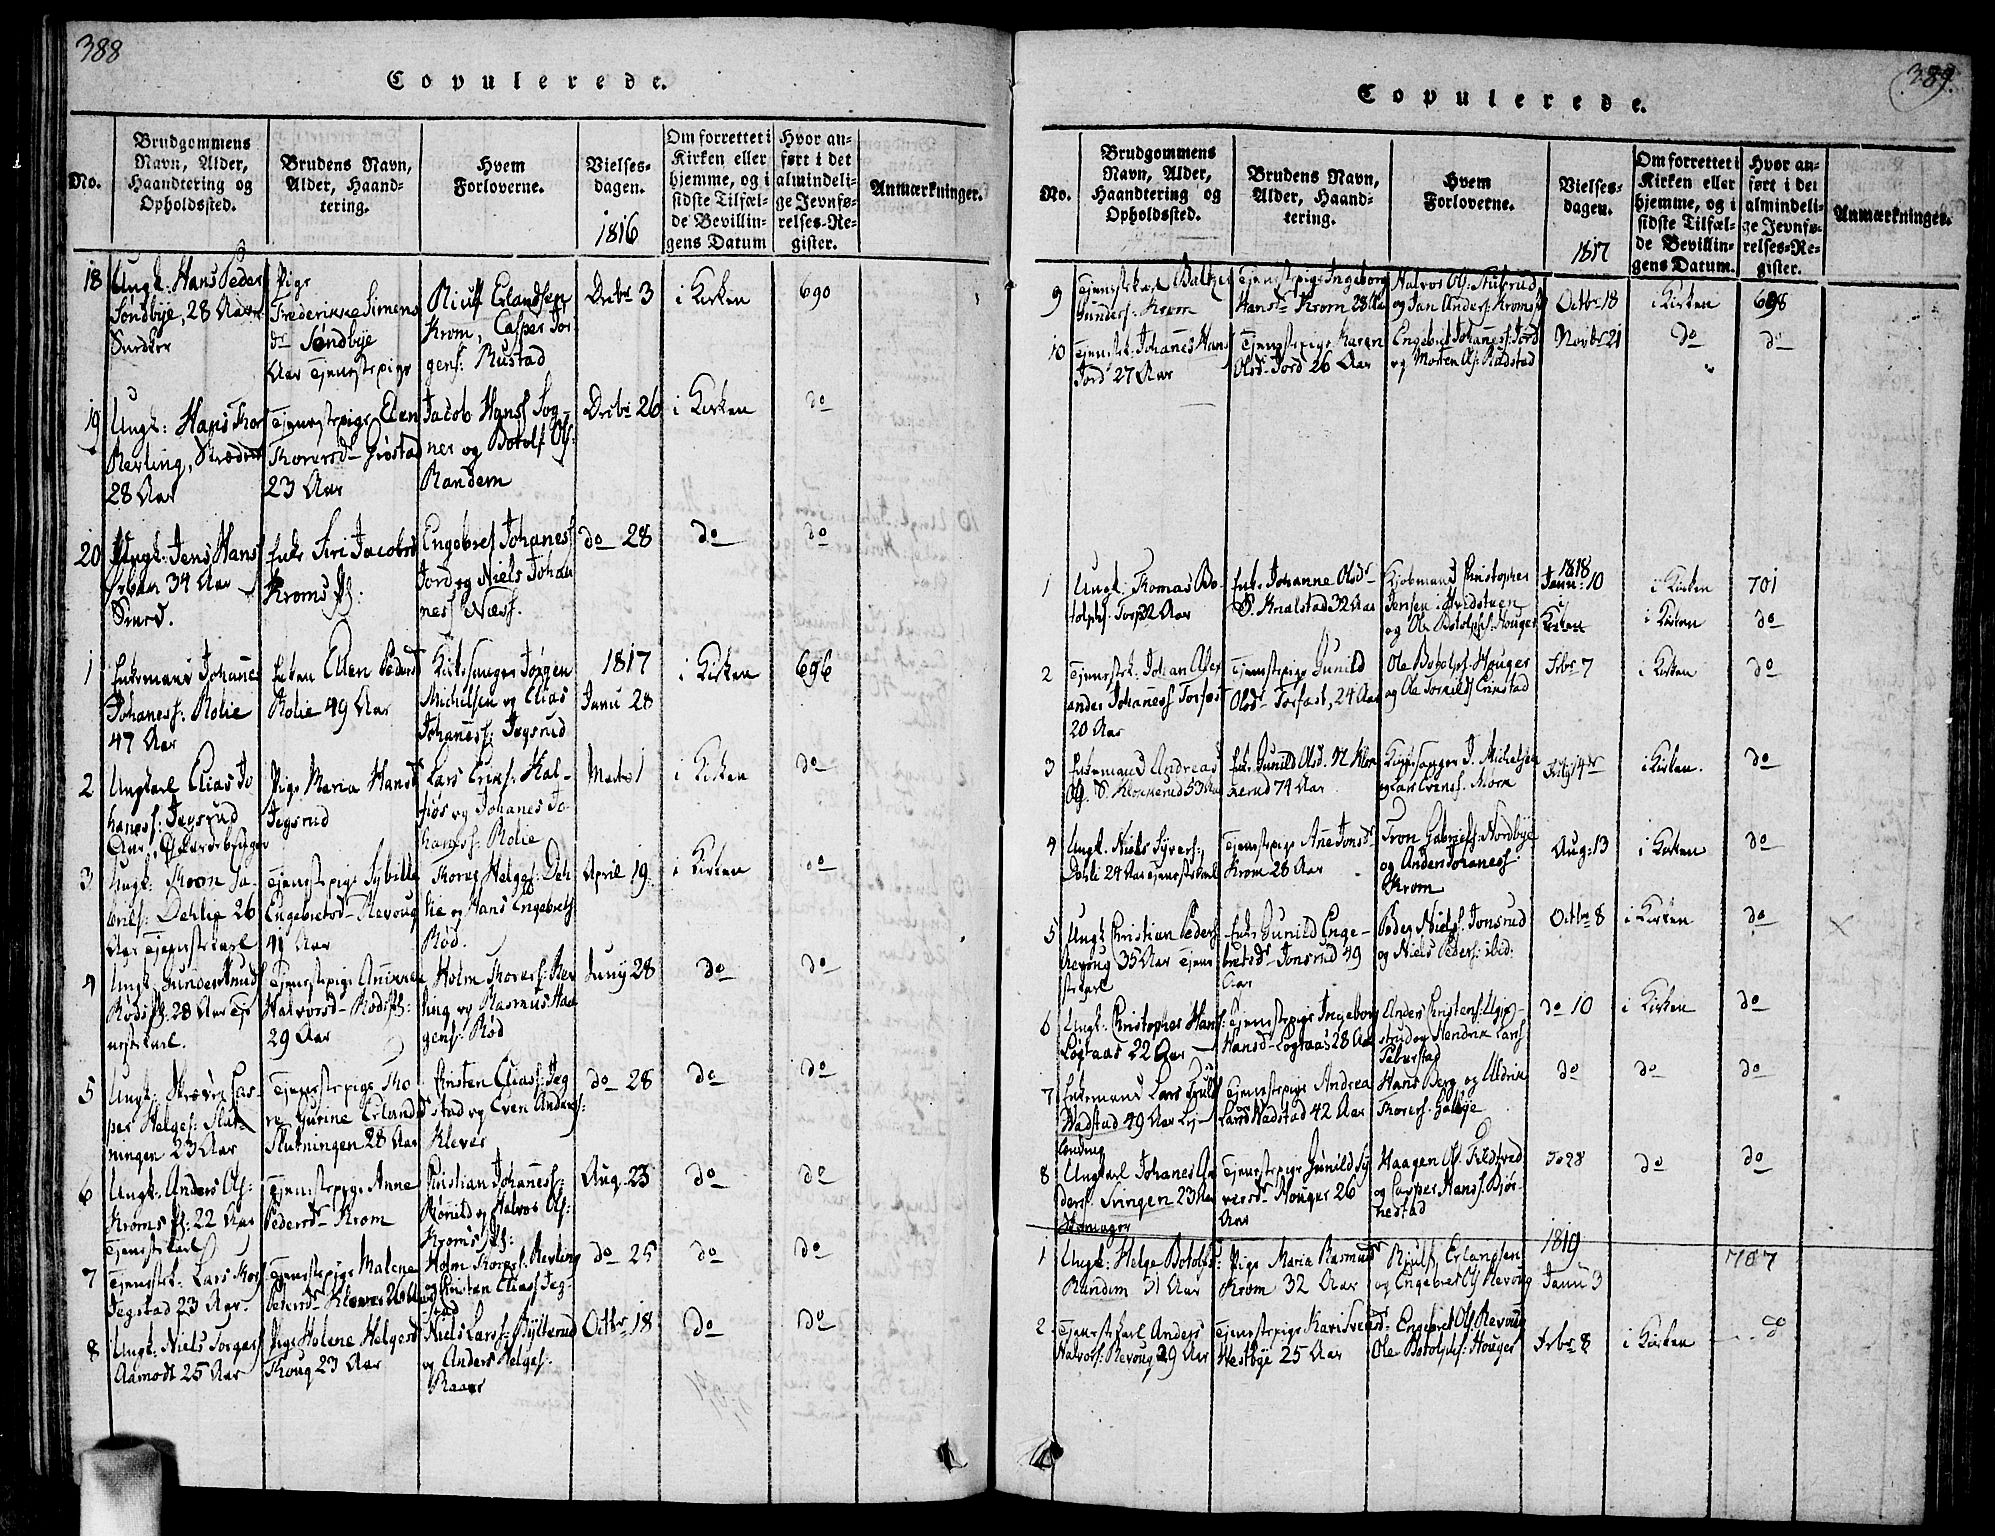 388
Copulerede.
No.
Brudgommens
Navn, Alder,
Haandtering og
Opholdssted.
Brudens Navn,
Alder, Haand-
tering.
Hvem
Forloverne.
Vielses-
dagen.
1816
Om forrettet i
Kirken eller
hjemme, og i
sidste Tilfæl-
de Bevillin-
gens Datum
Hvor an-
ført i det
almindeli-
ge Jevnfø-
relses-Re-
gister.
Anmærkninger.
18
Ungk: Hans Peder
Søndbye, 28 Aar
Snedker
Pige
Frederikke Simens
dr Søndbye
Aar Tjenestepige
Riulf Erlandsen
Krom, Casper Jør
gens: Rustad
Decbr 3
i Kirken
690
19
Ungk: Hans Thor
Rerling, Skræder
28 Aar
Tjenestepige Elen
Thorersd- Grøstad
23 Aar
Jacob Hans Sog-
ner og Botolf Ols:
Randem
Decbr 26
i Kirken
do
20
Ungk: Jens Hans
34 Aar
Smed.
Enke Siri Jacobsd
Kroms
Engebret Johaness
Jord og Niels Johan
ness Næss.
do 28
do
do
1
Enkemand Johannes
Johaness: Rolie
47 Aar
Enken Elen Pedersd
Rolie 49 Aar
Kirkesanger Jørgen
Michelsen og Elias
Johaness: Jegsrud
1817
Janu 28
i Kirken
696
2
Ungkarl Elias Jo
haness: Jegsrud
Aar
Pige Maria Hansd
Jegsrud
Lars Eriks: Hal-
fios og Johanes Jo-
haness: Rolie
Marts 1
i Kirken
do
3
Ungk: Thron Ga-
briels: Dehlie 26
Aar Tjenestekarl
Tjenestepige Sybille
Engebretsd- Revoug
41 Aar
Thorer Helges: Deh
lie og Hans Engebrets
Rød.
April 19
i Kirken
do
4
Ungk. Gunder Knud
Røds 28 Aar Tje
nestekarl.
Tjenestepige Annikken
Halvorsd- Røds
29 Aar
Holm Thorers: Rer
ling og Rasmus Haa
gens: Rød
Juny 28
do
do
5
Ungk: Skræder Cas-
per Helges: Slut-
ningen 23 Aar
Tjenestepige Tho
re Gurine Erlandsd
Slutningen 28 Aar
Kristen Eliass: Jeg
stad og Even Anders:
Klever
do 28
do
do
6
Ungk: Anders Ols:
Kroms 22 Aar
Tjenestekarl
Tjenestepige Anne
Pedersd- Krom
Kristian Johaness:
og Halvor Ols:
Kroms
Aug. 23
do
do
7
Tjenestek: Lars Thor
Jegstad 23 Aar.
Tjenestepige Malene
Petersdr Klever 26 Aar
Holm Thorers: Rerling
og Christen Eliass Jeg-
stad
do 25
do
do
8
Ungk: Niels Torgers
Aamodt 25 Aar
Pige Helene Helgesd
Skoug 23 Aar
Niels Lars: Bylterud
og Anders Helges:
Raaer
Octbr 18
do
do
389.
Copulerede.
No.
Brudgommens
Navn, Alder,
Haandtering og
Opholdssted.
Brudens Navn,
Alder, Haand-
tering.
Hvem
Forloverne.
Vielses-
dagen.
1817
Om forrettet i
Kirken eller
hjemme, og i
sidste Tilfæl-
de Bevillin-
gens Datum.
Hvor an-
ført i det
almindeli-
ge Jevnfø-
relses-Re-
gister.
Anmærkninger.
9
Tjenestekarl Baltzer
Gunders: Krom
Tjenestepige Ingeborg
Hansdr Krom 28 Aar
Halvor Ols: Stubrud
og Jan Anders: Kroms
Octbr 18
i Kirken
698
10
Tjenestek: Johanes Hans
Jord 27 Aar
Tjenestepige Karen
Olsd- Jord 26 Aar
Engebret Johaness: Jord
og Morten Ols: Radstad
Novbr 21
do
do
1
Ungk. Thomas Bo-
tolphs: Torp 32 Aar
Enke Johanne Olsdr
S. Knalstad 32 Aar
Kjøbmand Christopher
Jensen i Hvidsteen
og Ole Botolphs: Houger
1818
Janu: 10
i
Kirken
i Kirken
i Kirken
701
do
2
Tjenestek: Johan Alex
ander Johaness Torfæst
20 Aar
Tjenestepige Gunild
Olsd- Torfæst, 24 Aar
Ole Botolphs Houger
og Ole Torkilds Ernstad
Febr 7
i Kirken
do
3
Enkemand Andreas
Ols. S. Klokkerud 53 Aar
Enke Gunild Olsd. N Klok
kerud 74 Aar
Kirkesanger J. Michelsen
og Lars Evens: Mørk
July 4de
i Kirken.
do
4
Ungk. Niels Syvers:
Dehli 24 Aar Tjenestekarl
Tjenestepige Anne Jonsdr
Krom 28 Aar
Tron Gabriels: Nordbye
og Anders Johaness:
Krom
Aug: 13
i Kirken
do
5
Ungk Christian Peders
Revoug 35 Aar Tjene
stekarl
Enke Gunild Enge-
bretsdr- Jonsrud 49
Aar
Peder Niels: Jonsrud
og Niels Peders: ibid:
Octbr 8
i Kirken
do
6
Ungk: Christopher Hans
Løgtaas 22 Aar
Tjenestepige Ingeborg
Hansd- Løgtaas 28 Aar
Anders Kristens:
og Hendrik Lars
Peberstad
do 10
i Kirken
do
7
Enkemand Lars Truls
Wadstad 49 Aar Lej-
lænding
Tjenestepige Andrea
Larsd Wadstad 42 Aar
Hans Berg og Uldrik
Thorers: Galbye
do
do
do
8
Ungkarl Johanes An
ders: Svingen 23 Aar
Skomager
Tjenestepige Gunild Sy
versdr Houger 26
Aar
Haagen Ols
og Casper Hans: Bjør-
nestad
do 28
do
do
1
Ungk: Helge Botolfs:
Randem 31 Aar
Pige Maria Rasmusdr
Krom 32 Aar
Rjulf Erlandsen
og Engebret Ols Revoug
1819
Janu 3
707
2
Tjenestekarl Anders
Halvors: Revoug 29 Aar
Tjenestepige Kari Svendsd-
Hestbye 25 Aar
Engebret Ols Revoug
Ole Botolphs: Houger
Febr 8
i Kirken
do